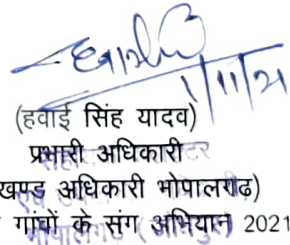 1/11/21
(हवाई सिंह यादव)
प्रभारी अधिकारी
खण्ड अधिकारी भोपालगढ)
गांवों के संग अभियान 2021